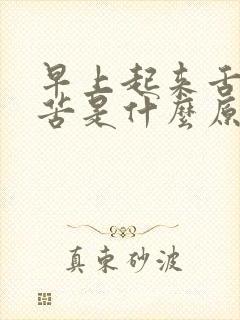 早上起来舌
苦是什麼原
真束砂波